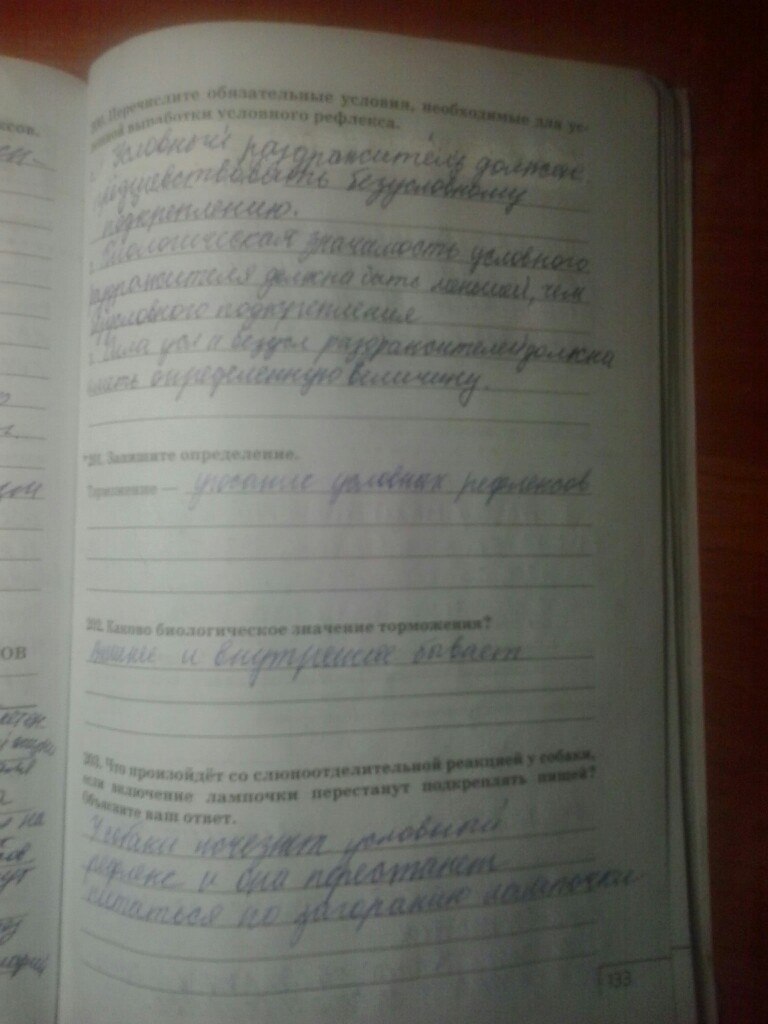 200. Перечислите обязательные условия, необходимые для ус-
выработки условного рефлекса.
Условный раздражитель должен
предшествовать безусловному
подкреплению.
Биологическая значимость условного
раздражителя должна быть меньшей, чем
безусловного подкрепления
Сила усл и безусл раздражителей должна
иметь определенную величину.
*201. Запишите определение.
Торможение — угасание условных рефлексов
202. Каково биологическое значение торможения?
и внутреннее бывает
203. Что произойдёт со слюноотделительной реакцией у собаки,
если включение лампочки перестанут подкреплять пищей?
Объясните ваш ответ.
У собаки исчезнет условный
рефлекс и она перестанет
питаться по загоранию лампочки
133
ксов.
ОВ
на